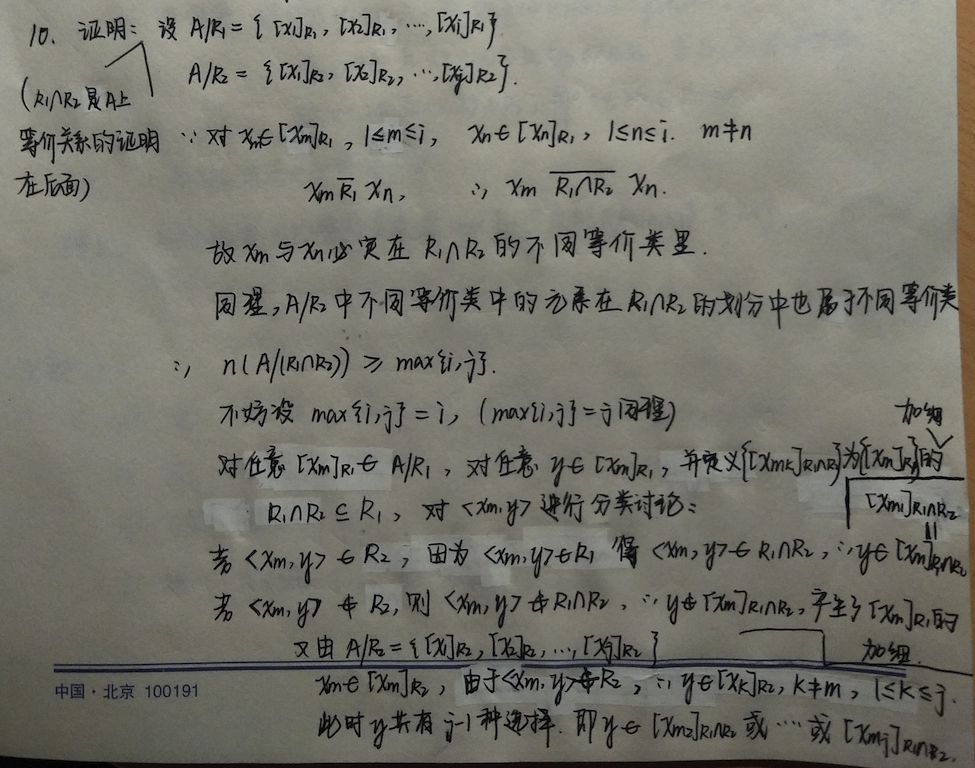 10. 证明: 设 A/R₁ = {[x₁]R₁, [x₂]R₁, ⋯, [xi]R₁}.
A/R₂ = {[x₁]R₂, [x₂]R₂, ⋯, [xj]R₂}.
(R₁∩R₂是A上
等价关系的证明
在后面)
∵ 对 xm∈[xm]R₁, 1≤m≤i, xn∈[xn]R₁, 1≤n≤i. m≠n
xm R̅₁ xn, ∴ xm \overline{R₁∩R₂} xn.
故 xm 与 xn 必定在 R₁∩R₂ 的不同等价类里.
同理, A/R₂ 中不同等价类中的元素在 R₁∩R₂ 的划分中也属于不同等价类
∴ n(A/(R₁∩R₂)) ≥ max{i,j}.
不妨设 max{i,j} = i, (max{i,j} = j 同理)
加细
对任意 [xm]R₁ ∈ A/R₁, 对任意 y∈[xm]R₁, 并定义{[xmk]R₁∩R₂}为{[xm]R₁}的
R₁∩R₂ ⊆ R₁, 对 <xm, y> 进行分类讨论:
[xm₁]R₁∩R₂
=
若 <xm, y> ∈ R₂, 因为 <xm, y> ∈ R₁ 得 <xm, y> ∈ R₁∩R₂, ∴ y∈[xm]R₁∩R₂
若 <xm, y> ∉ R₂, 则 <xm, y> ∉ R₁∩R₂, ∴ y∉[xm]R₁∩R₂, 产生了[xm]R₁的
加细.
又由 A/R₂ = {[x₁]R₂, [x₂]R₂, ⋯, [xj]R₂}
xm∈[xm]R₂, 由于<xm, y>∉R₂, ∴ y∈[xk]R₂, k≠m, 1≤k≤j.
中国·北京 100191
此时 y 共有 j-1 种选择. 即 y∈[xm₂]R₁∩R₂ 或 ⋯ 或 [xmj]R₁∩R₂.